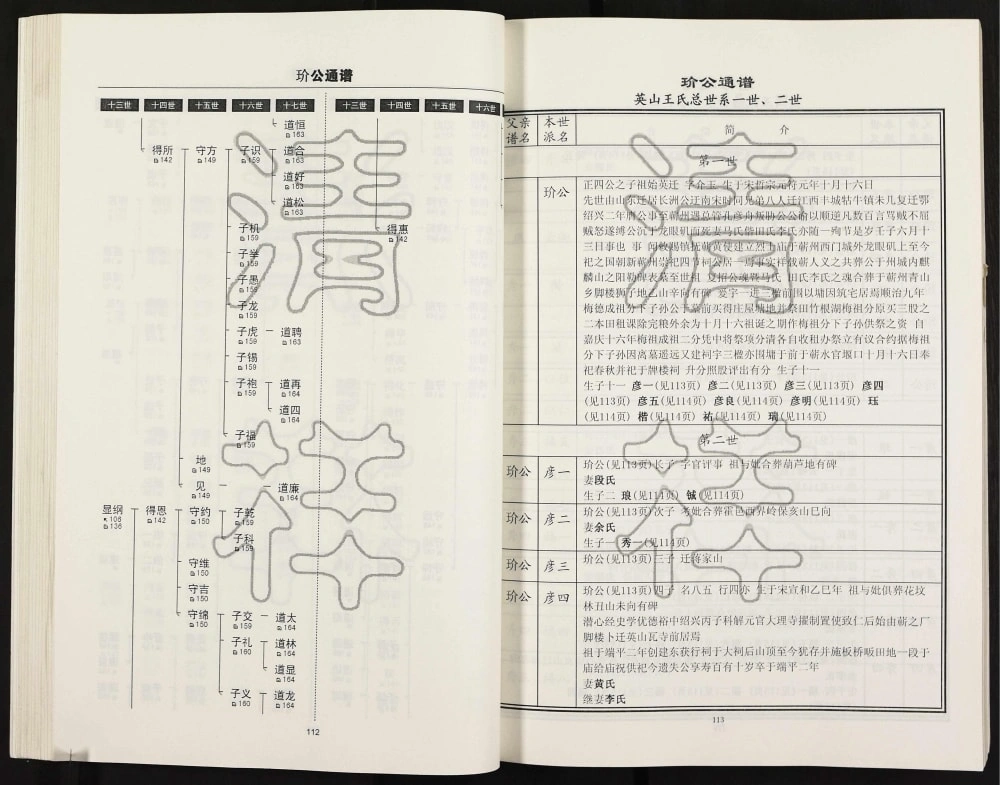 玠公通谱
十三世 十四世 十五世 十六世 十七世 十三世 十四世 十五世 十六世
道恒
163
得所 守方 子识 道合
142 149 159 163
道好
163
道松
163
子机 得惠
159 142
子举
159
子愚
159
子龙
159
子虎 道聘
159 163
子锡
159
子袍 道再
159 164
道四
164
子福
159
地
149
见 道廉
149 164
显纲 得恩 守约 子乾
106 142 150 159
136
子科
159
守维
150
守吉
150
守绵 子交 道太
150 159 164
子礼 道林
160 164
道显
164
子义 道龙
160 164
112
玠公通谱
英山王氏总世系一世、二世
父亲谱名 本世派名 简介
第一世
玠公
正四公之子祖始英迁 字介玉 生于宋哲宗元符元年十月十六日
先世由山东迁居长洲公迁南宋时同兄弟八人迁江西丰城牯牛镇未几复迁鄂
绍兴二年因公事至蕲州遇总管孔彦舟叛胁公公谕以顺逆凡数百言骂贼不屈
贼怒遂缚公沉于龙眼矶而死妻马氏偕田氏李氏亦随一殉节是岁壬子六月十
三日事也 事 闻敕赐镇抚蕲黄使建立烈士庙于蕲州西门城外龙眼矶上至今
祀之国朝新蕲州崇祀四节祠公居一焉事实祥载蕲人义之共葬公于州城内麒
麟山之阳勒碑表墓至世祖 夏招公魂暨马氏 田氏李氏之魂合葬于蕲州青山
乡脚楼狮子地乙山辛向有碑
梅德成祖分下子孙公于墓前买得庄屋墟地并祭田竹根湖梅祖分原买三股之
二本田租课除完粮外余为十月十六祖诞之期作梅祖分下子孙供祭之资 自
嘉庆十六年梅祖成祖二分凭中将祭项分清各自收租办祭立有议合约据梅祖
分下子孙因离墓遥远又建祠宇三楹亦围墉于前于蕲水官堰口十月十六日奉
祀春秋并祀于牌楼祠 升分照股评出有分 生子十一
生子十一 彦一(见113页) 彦二(见113页) 彦三(见113页) 彦四
(见113页) 彦五(见114页) 彦良(见114页) 彦明(见114页) 珏
(见114页) 楷(见114页) 祐(见114页) 瑞(见114页)
第二世
玠公 彦一
玠公(见113页)长子 字官评事 祖与妣合葬葫芦地有碑
妻段氏
生子二 琅(见114页) 铖(见114页)
玠公 彦二
玠公(见113页)次子 考妣合葬霍邑西界岭保亥山巳向
妻余氏
生子一 秀一(见114页)
玠公 彦三
玠公(见113页)三子 迁蒋家山
玠公 彦四
玠公(见113页)四子 名八五 行四亦 生于宋宣和乙巳年 祖与妣俱葬花坟
林丑山未向有碑
潜心经史学优德裕中绍兴丙子科解元官大理寺擢制置使致仁后始由蕲之厂
脚楼卜迁英山瓦寺前居焉
祖于端平二年创建东获行祠于大祠后山顶至今犹存并施板桥畈田地一段于
庙给庙祝供祀今遗失公享寿百有十岁卒于端平二年
妻黄氏
继妻李氏
113